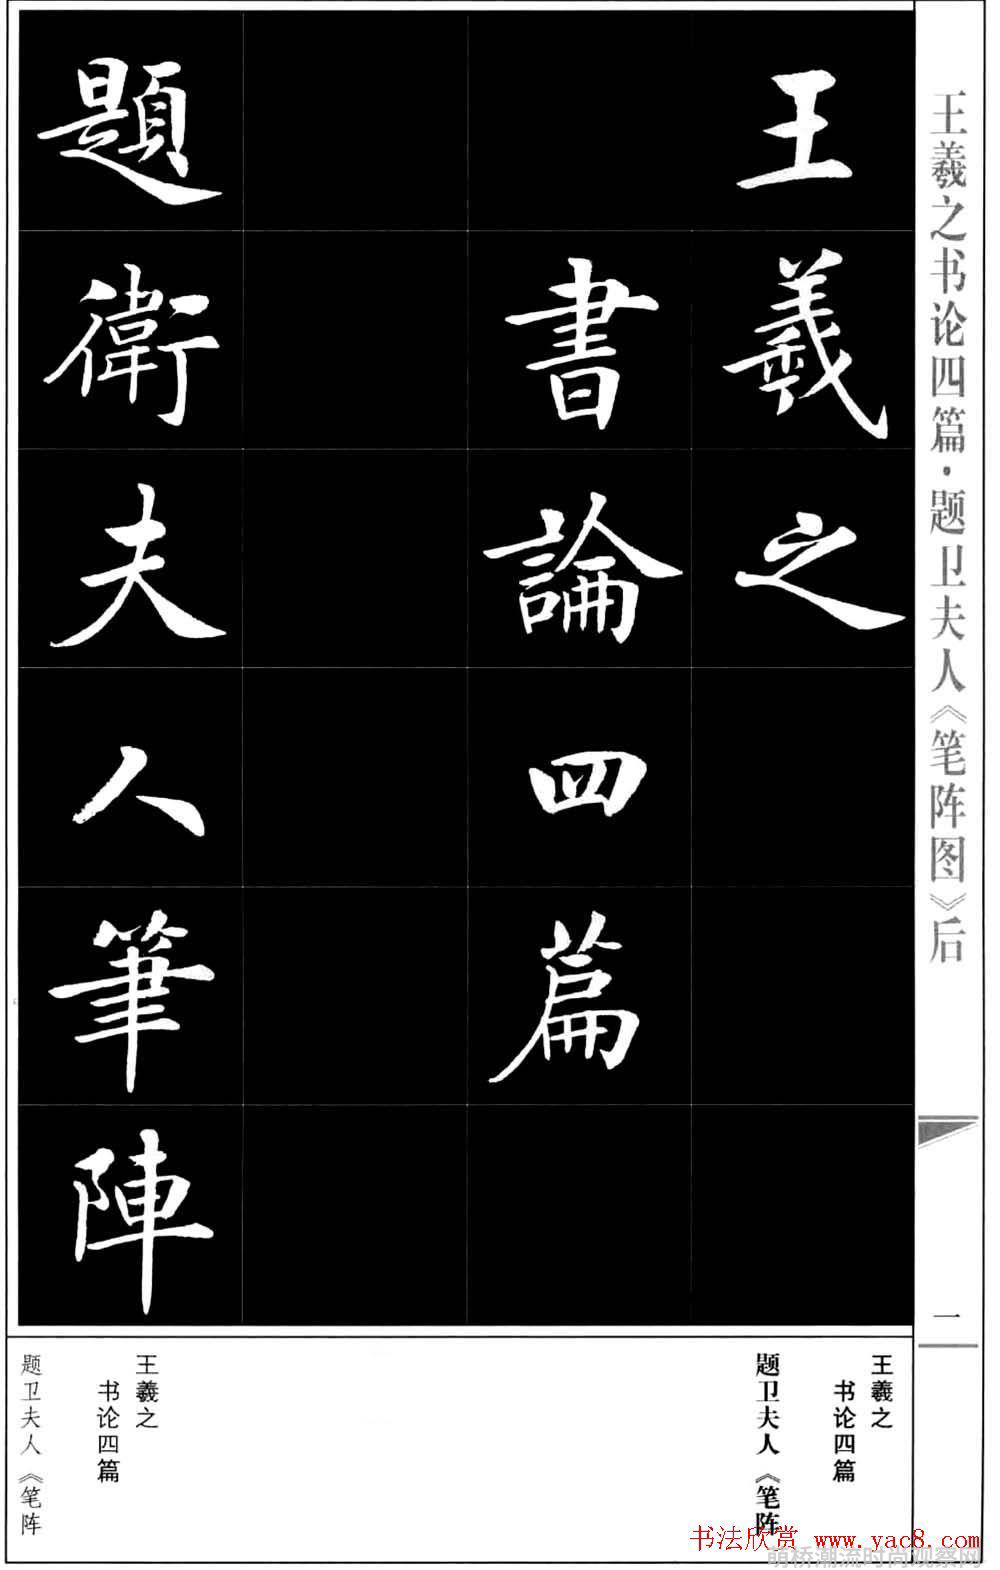 王羲之书论四篇·题卫夫人《笔阵图》后
一
王羲之
書論四篇
題衛夫人筆陣
王羲之
书论四篇
题卫夫人《笔阵
王羲之
书论四篇
题卫夫人《笔阵
书法欣赏 www.yac8.com
萌桥潮流时尚观察网